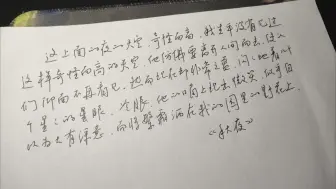 这上面的夜的天空,奇怪而高,我生平没有见过
这样奇怪而高的天空。他仿佛要离开人间而去,使人
们仰面不再看见。然而现在却非常之蓝,闪闪地䀹着几
十个星星的星眼,冷眼。他的口角上现出微笑,似乎自
以为大有深意,而将繁霜洒在我的园里的野花上。
《秋夜》